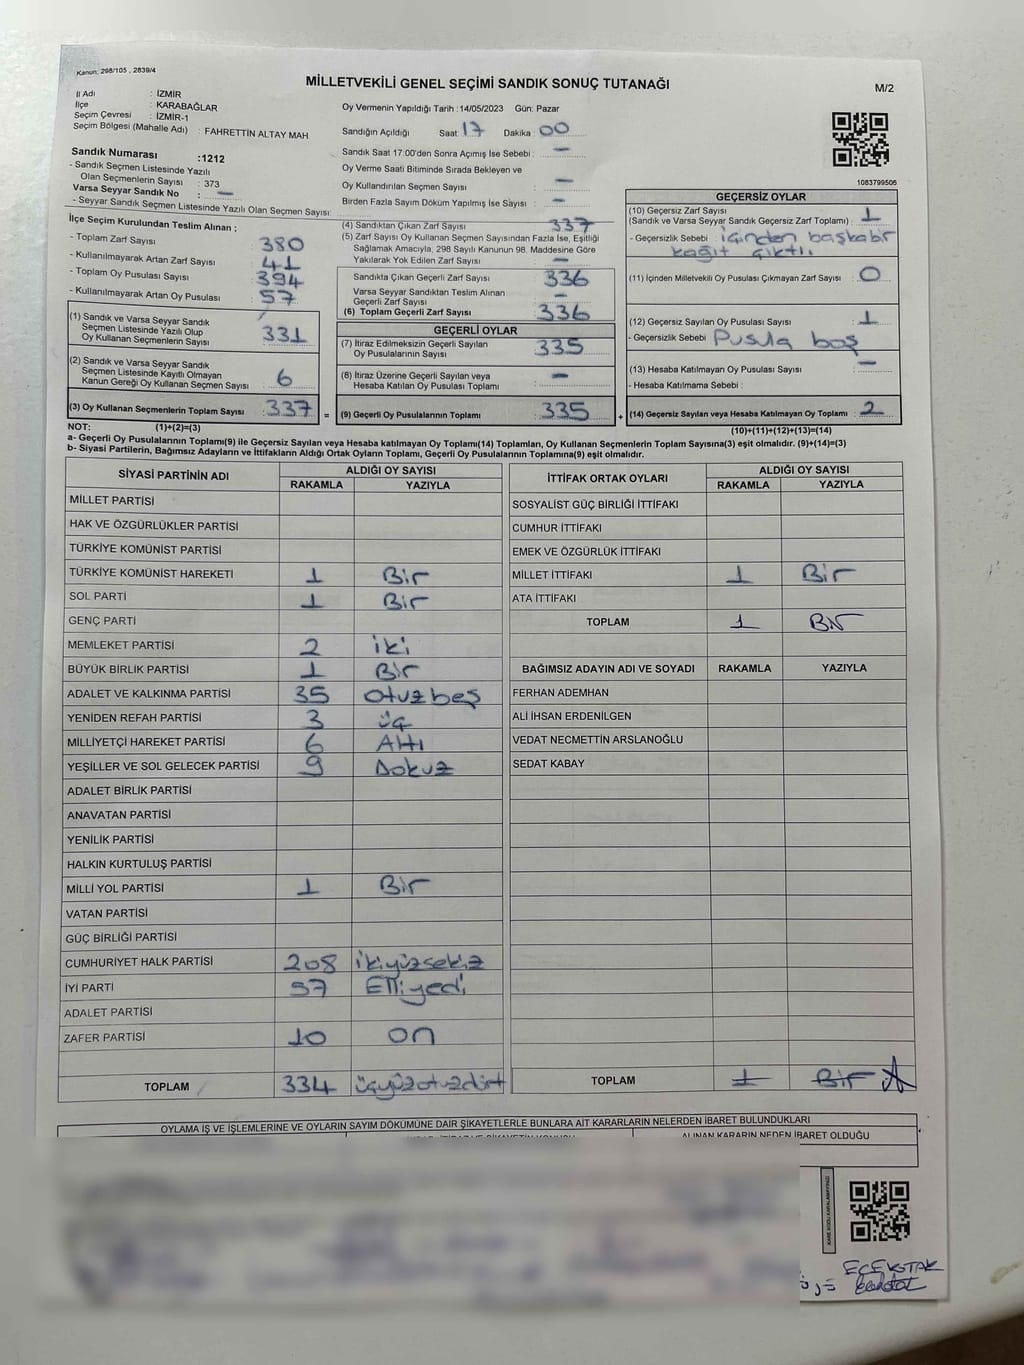 Kanun: 298/105 , 2839/4
MİLLETVEKİLİ GENEL SEÇİMİ SANDIK SONUÇ TUTANAĞI
M/2
İl Adı : İZMİR
İlçe : KARABAĞLAR
Seçim Çevresi : İZMİR-1
Seçim Bölgesi (Mahalle Adı) : FAHRETTİN ALTAY MAH
Sandık Numarası :1212
- Sandık Seçmen Listesinde Yazılı
Olan Seçmenlerin Sayısı : 373
Varsa Seyyar Sandık No : —
- Seyyar Sandık Seçmen Listesinde Yazılı Olan Seçmen Sayısı:
Oy Vermenin Yapıldığı Tarih :14/05/2023 Gün: Pazar
Sandığın Açıldığı Saat: 17 Dakika : 00
Sandık Saat 17:00'den Sonra Açımış İse Sebebi : —
Oy Verme Saati Bitiminde Sırada Bekleyen ve
Oy Kullandırılan Seçmen Sayısı : —
Birden Fazla Sayım Döküm Yapılmış İse Sayısı : —
1083799506
İlçe Seçim Kurulundan Teslim Alınan ;
- Toplam Zarf Sayısı : 380
- Kullanılmayarak Artan Zarf Sayısı : 41
- Toplam Oy Pusulası Sayısı : 394
- Kullanılmayarak Artan Oy Pusulası : 57
(1) Sandık ve Varsa Seyyar Sandık
Seçmen Listesinde Yazılı Olup
Oy Kullanan Seçmenlerin Sayısı : 331
(2) Sandık ve Varsa Seyyar Sandık
Seçmen Listesinde Kayıtlı Olmayan
Kanun Gereği Oy Kullanan Seçmen Sayısı : 6
(3) Oy Kullanan Seçmenlerin Toplam Sayısı : 337 =
(4) Sandıktan Çıkan Zarf Sayısı : 337
(5) Zarf Sayısı Oy Kullanan Seçmen Sayısından Fazla İse, Eşitliği
Sağlamak Amacıyla, 298 Sayılı Kanunun 98. Maddesine Göre
Yakılarak Yok Edilen Zarf Sayısı : —
Sandıkta Çıkan Geçerli Zarf Sayısı : 336
Varsa Seyyar Sandıktan Teslim Alınan
Geçerli Zarf Sayısı : —
(6) Toplam Geçerli Zarf Sayısı : 336
GEÇERLİ OYLAR
(7) İtiraz Edilmeksizin Geçerli Sayılan
Oy Pusulalarının Sayısı : 335
(8) İtiraz Üzerine Geçerli Sayılan veya
Hesaba Katılan Oy Pusulası Toplamı : —
(9) Geçerli Oy Pusulalarının Toplamı : 335 +
GEÇERSİZ OYLAR
(10) Geçersiz Zarf Sayısı
(Sandık ve Varsa Seyyar Sandık Geçersiz Zarf Toplamı) : 1
- Geçersizlik Sebebi : içinden başkabir
kağıt çıktı.
(11) İçinden Milletvekili Oy Pusulası Çıkmayan Zarf Sayısı : 0
(12) Geçersiz Sayılan Oy Pusulası Sayısı : 1
- Geçersizlik Sebebi Pusula boş
(13) Hesaba Katılmayan Oy Pusulası Sayısı : —
- Hesaba Katılmama Sebebi :
(14) Geçersiz Sayılan veya Hesaba Katılmayan Oy Toplamı : 2
NOT: (1)+(2)=(3) (10)+(11)+(12)+(13)=(14)
a- Geçerli Oy Pusulalarının Toplamı(9) ile Geçersiz Sayılan veya Hesaba katılmayan Oy Toplamı(14) Toplamları, Oy Kullanan Seçmenlerin Toplam Sayısına(3) eşit olmalıdır. (9)+(14)=(3)
b- Siyasi Partilerin, Bağımsız Adayların ve İttifakların Aldığı Ortak Oyların Toplamı, Geçerli Oy Pusulalarının Toplamına(9) eşit olmalıdır.
SİYASİ PARTİNİN ADI ALDIĞI OY SAYISI
RAKAMLA YAZIYLA
MİLLET PARTİSİ
HAK VE ÖZGÜRLÜKLER PARTİSİ
TÜRKİYE KOMÜNİST PARTİSİ
TÜRKİYE KOMÜNİST HAREKETİ 1 Bir
SOL PARTİ 1 Bir
GENÇ PARTİ
MEMLEKET PARTİSİ 2 iki
BÜYÜK BİRLİK PARTİSİ 1 Bir
ADALET VE KALKINMA PARTİSİ 35 otuzbeş
YENİDEN REFAH PARTİSİ 3 üç
MİLLİYETÇİ HAREKET PARTİSİ 6 Altı
YEŞİLLER VE SOL GELECEK PARTİSİ 9 Dokuz
ADALET BİRLİK PARTİSİ
ANAVATAN PARTİSİ
YENİLİK PARTİSİ
HALKIN KURTULUŞ PARTİSİ
MİLLİ YOL PARTİSİ 1 Bir
VATAN PARTİSİ
GÜÇ BİRLİĞİ PARTİSİ
CUMHURİYET HALK PARTİSİ 208 ikiyüzsekiz
İYİ PARTİ 57 Elliyedi
ADALET PARTİSİ
ZAFER PARTİSİ 10 on
TOPLAM 334 üçyüzotuzdört
İTTİFAK ORTAK OYLARI ALDIĞI OY SAYISI
RAKAMLA YAZIYLA
SOSYALİST GÜÇ BİRLİĞİ İTTİFAKI
CUMHUR İTTİFAKI
EMEK VE ÖZGÜRLÜK İTTİFAKI
MİLLET İTTİFAKI 1 Bir
ATA İTTİFAKI
TOPLAM 1 Bir
BAĞIMSIZ ADAYIN ADI VE SOYADI RAKAMLA YAZIYLA
FERHAN ADEMHAN
ALİ İHSAN ERDENİLGEN
VEDAT NECMETTİN ARSLANOĞLU
SEDAT KABAY
TOPLAM 1 Bir
OYLAMA İŞ VE İŞLEMLERİNE VE OYLARIN SAYIM DÖKÜMÜNE DAİR ŞİKAYETLERLE BUNLARA AİT KARARLARIN NELERDEN İBARET BULUNDUKLARI
ALINAN KARARIN NEDEN İBARET OLDUĞU
KARE KODU KARALAMAYINIZ!